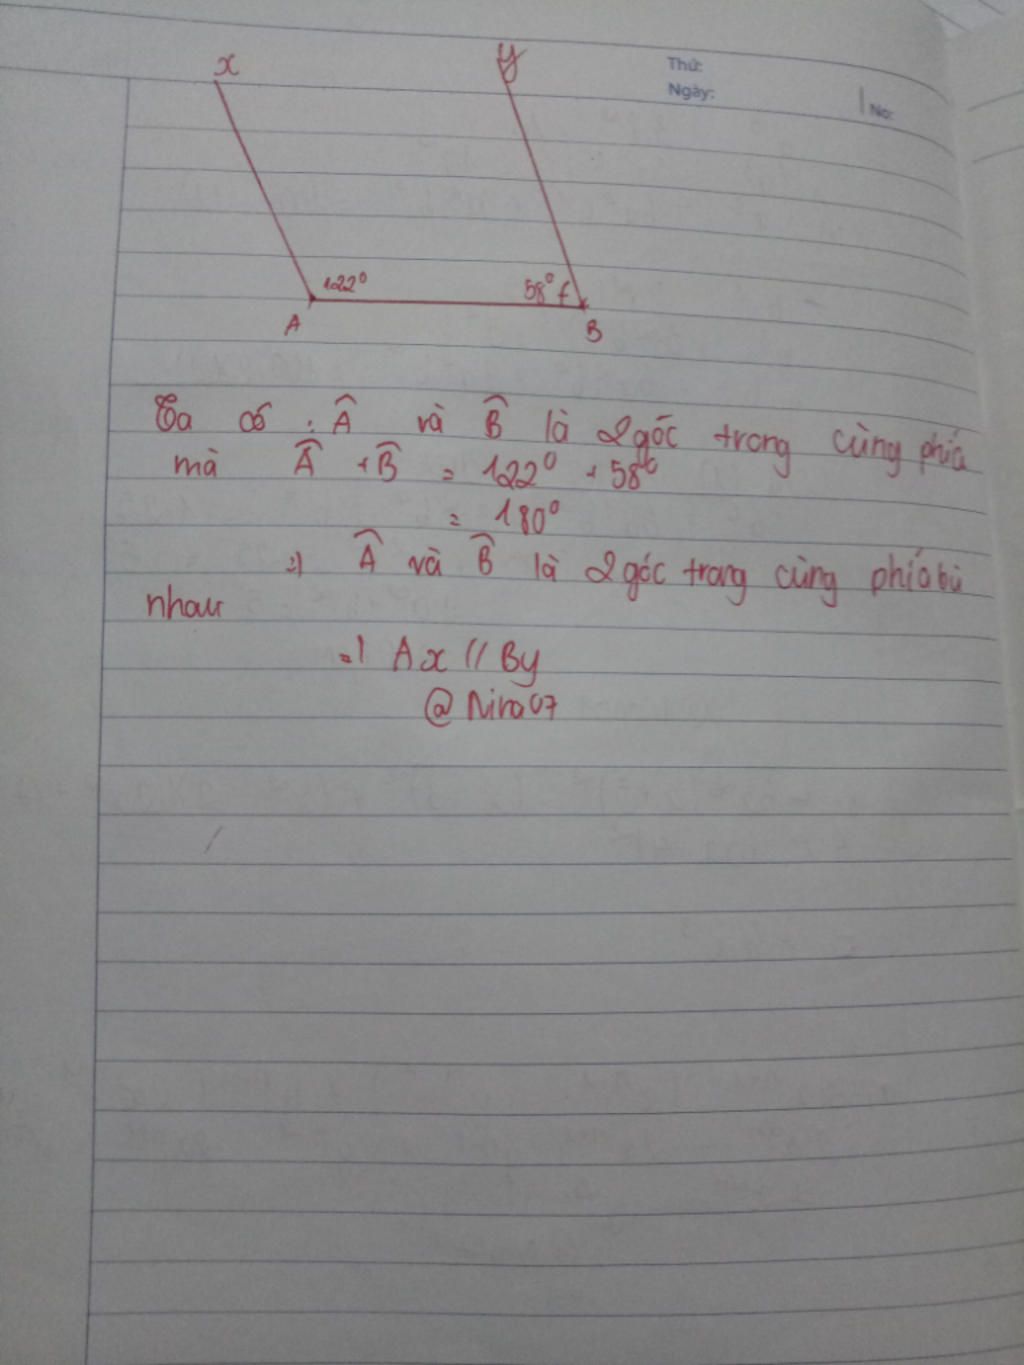 x y
Thứ:
Ngày: No:
122° 58°
A B
Ta có : Â và B̂ là 2 góc trong cùng phía
mà Â + B̂ = 122° + 58°
= 180°
=) Â và B̂ là 2 góc trong cùng phía bù
nhau
=) Ax // By
@Nira07